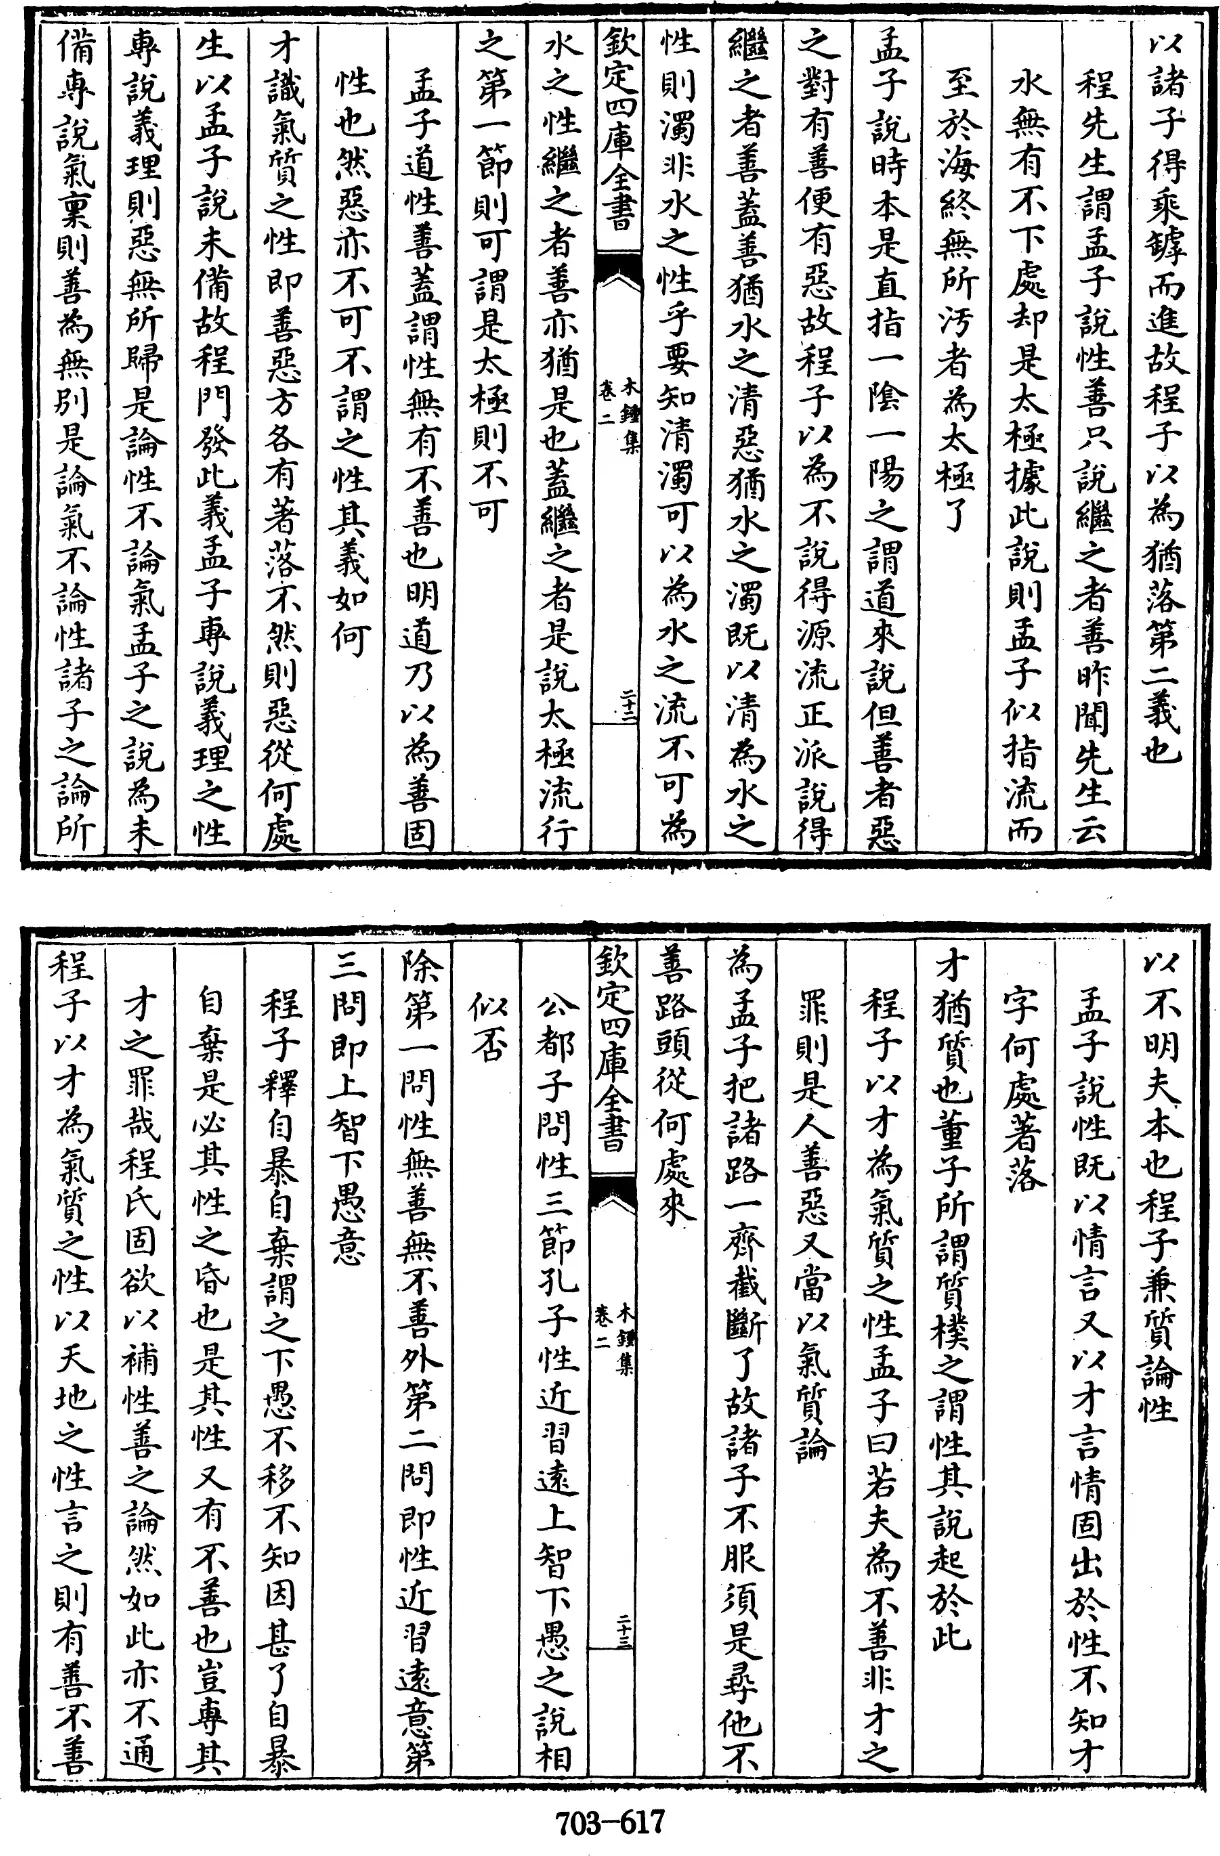 以諸子得乘罅而進故程子以為猶落第二義也
程先生謂孟子說性善只說繼之者善昨聞先生云
水無有不下處却是太極據此說則孟子似指流而
至於海終無所汚者為太極了
孟子說時本是直指一陰一陽之謂道來說但善者惡
之對有善便有惡故程子以為不說得源流正派說得
繼之者善蓋善猶水之清惡猶水之濁既以清為水之
性則濁非水之性乎要知清濁可以為水之流不可為
欽定四庫全書
木鍾集
卷二
二十二
水之性繼之者善亦猶是也蓋繼之者是說太極流行
之第一節則可謂是太極則不可
孟子道性善蓋謂性無有不善也明道乃以為善固
性也然惡亦不可不謂之性其義如何
才識氣質之性即善惡方各有著落不然則惡從何處
生以孟子說未備故程門發此義孟子專說義理之性
專說義理則惡無所歸是論性不論氣孟子之說為未
備專說氣稟則善為無別是論氣不論性諸子之論所
以不明夫本也程子兼質論性
孟子說性既以情言又以才言情固出於性不知才
字何處著落
才猶質也董子所謂質樸之謂性其說起於此
程子以才為氣質之性孟子曰若夫為不善非才之
罪則是人善惡又當以氣質論
為孟子把諸路一齊截斷了故諸子不服須是尋他不
善路頭從何處來
欽定四庫全書
木鍾集
卷二
二十三
公都子問性三節孔子性近習遠上智下愚之說相
似否
除第一問性無善無不善外第二問即性近習遠意第
三問即上智下愚意
程子釋自暴自棄謂之下愚不移不知因甚了自暴
自棄是必其性之昏也是其性又有不善也豈專其
才之罪哉程氏固欲以補性善之論然如此亦不通
程子以才為氣質之性以天地之性言之則有善不善
703-617